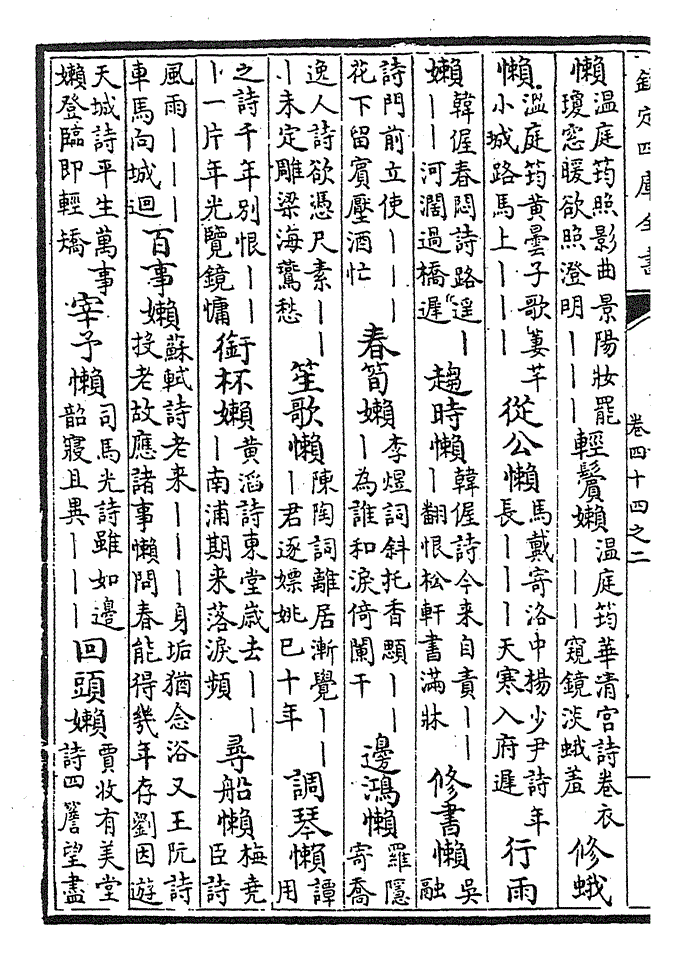 欽定四庫全書
卷四十四之二
懶
溫庭筠照影曲景陽妝罷
瓊窓暖欲照澄明｜｜｜
輕鬢嬾
溫庭筠華清宮詩卷衣
｜｜｜窺鏡淡蛾羞
修蛾
懶
溫庭筠黄曇子歌萋芊
小城路馬上｜｜｜
從公懶
馬戴寄洛中楊少尹詩年
長｜｜｜天寒入府遲
行雨
嬾
韓偓春悶詩路遥｜
｜｜河濶過橋遲
趨時懶
韓偓詩今来自責｜｜
｜翻恨松軒書滿牀
修書懶
吳
融
詩門前立使｜｜｜
花下留賓壓酒忙
春筍嬾
李煜詞斜托香顋｜｜
｜為誰和淚倚闌干
邊鴻嬾
羅隱
寄喬
逸人詩欲憑尺素｜｜
｜未定雕梁海鷰愁
笙歌懶
陳陶詞離居漸覺｜｜
｜君逐嫖姚已十年
調琴懶
譚
用
之詩千年别恨｜｜
｜一片年光覽鏡慵
銜杯嬾
黄滔詩東堂歲去｜｜
｜南浦期来落淚頻
尋船懶
梅堯
臣詩
風雨｜｜｜
車馬向城迴
百事嬾
蘇軾詩老来｜｜｜身垢猶念浴又王阮詩
投老故應諸事懶問春能得幾年存劉因遊
天城詩平生萬事
嬾登臨即輕矯
宰予懶
司馬光詩雖如邊
韶寢且異｜｜｜
回頭嬾
賈收有美堂
詩四簷望盡